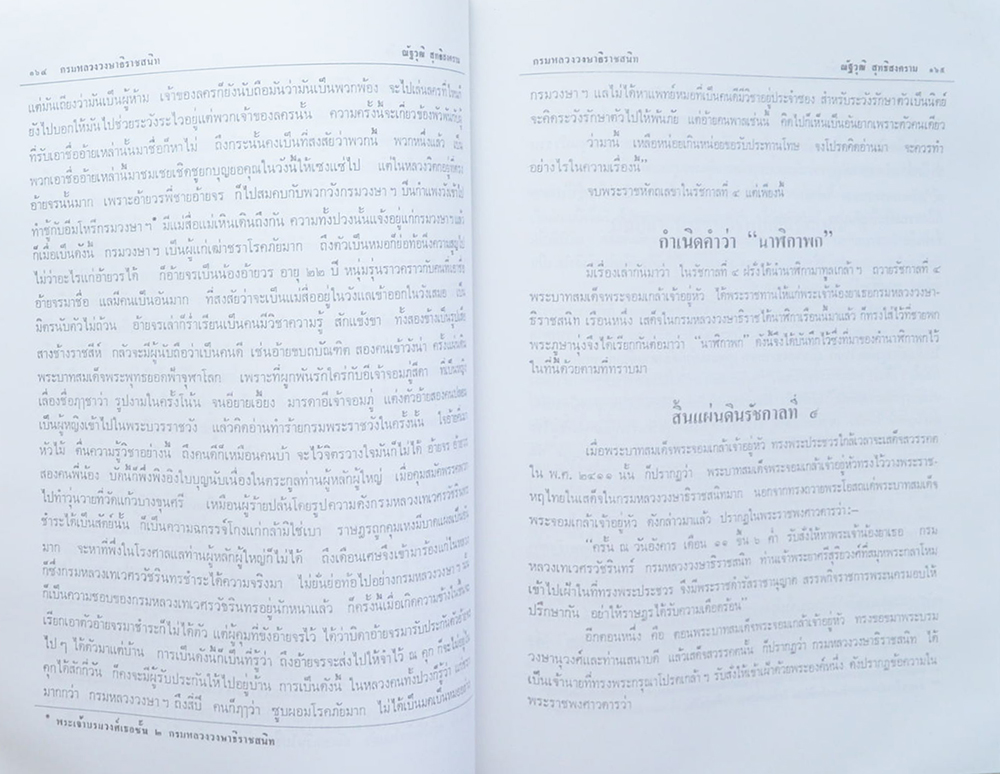 ๑๖๔ กรมหลวงวงษาธิราชสนิท
ณัฐวุฒิ สุทธิสงคราม
แต่มันเถียงว่ามันเป็นผู้ห้าม เจ้าของลครก็ยังนับถือมันว่ามันเป็นพวกพ้อง จะไปเล่นลครที่ไหนก็
ยังไปบอกให้มันไปช่วยระวังระไวอยู่แต่พวกเจ้าของลครนั้น ความครั้งนั้นจะเกี่ยวข้อง
ที่รับเอาชื่ออ้ายเหล่านั้นมาชื่อก็หาไม่ ถึงกระนั้นคงเป็นที่สงสัยว่าพวกนี้ พวกหนึ่งแล้ว เป็น
พวกเอาชื่ออ้ายเหล่านี้มาชมเชยเชิดชูยกบุญยอคุณในวังนี้ให้เซงแซ่ไป แต่ในหลวง
อ้ายจรนั้นมาก เพราะอ้ายวรพี่ชายอ้ายจร ก็ไปสมคบกับพวกวังกรมวงษาฯ ปีนกำแพงวังเข้าไป
ทำชู้กับอีมโหรีกรมวงษาฯ* มีแม่สื่อแม่เหินเดินถึงกัน ความทั้งปวงนั้นแจ้งอยู่แก่กรมวงษาฯ
ก็เมื่อเป็นดังนี้ กรมวงษาฯ เป็นผู้แก่เฒ่าชราโรคภัยมาก ถึงตัวเป็นหมอก็ย่อท้อนิ่งความสูญไป
ไม่ว่าอะไรแก่อ้ายวรได้ ก็อ้ายจรเป็นน้องอ้ายวร อายุ ๒๒ ปี หนุ่มรุ่นราวคราวกับคนที่เอาชื่อ
อ้ายจรมาชื่อ แลมีคนเป็นอันมาก ที่สงสัยว่าจะเป็นแม่สื่ออยู่ในวังแลเข้าออกในวังเสมอ เป็น
มิตรนับตัวไม่ถ้วน อ้ายจรเล่าก็ร่ำเรียนเป็นคนมีวิชาความรู้ สักแข้งขา ทั้งสองข้างเป็นรูป
สางช้างราชสีห์ กลัวจะมีผู้นับถือว่าเป็นคนดี เช่นอ้ายขบถบัณฑิต สองคนเข้าวังน่า ครั้งแผ่นดิน
พระบาทสมเด็จพระพุทธยอดฟ้าจุฬาโลก เพราะที่ผูกพันรักใคร่กับอีเจ้าจอมภู่สีดา ที่เป็น
เลื่องชื่อฦๅชาว่า รูปงามในครั้งโน้น จนอียายเอี้ยง มารดาอีเจ้าจอมภู่ แต่งตัวอ้ายสองคน
เป็นผู้หญิงเข้าไปในพระบวรราชวัง แล้วคิดอ่านทำร้ายกรมพระราชวังในครั้งนั้น
หัวไม้ ตื่นความรู้วิชาอย่างนี้ ถึงคนดีก็เหมือนคนบ้า จะไว้จิตรวางใจมันก็ไม่ได้ อ้ายจร อ้ายวร
สองคนพี่น้อง บัดนี้ก็พึ่งพิงอิงใบบุญนับเนื่องในตระกูลท่านผู้หลักผู้ใหญ่ เมื่อคุมสมัคพรรคพวก
ไปทำวุ่นวายที่วัดแก้วบางขุนศรี เหมือนผู้ร้ายปล้นโดยรูปความดังกรมหลวงเทเวศรวัชรินทร
ชำระได้เป็นสัตย์นั้น ก็เป็นความฉกรรจ์โกงแก่กล้ามิใช่เบา ราษฎรถูกคุมเหงมีบาดแผลเป็นอัน
มาก จะหาที่พึ่งในโรงศาลแลท่านผู้หลักผู้ใหญ่ก็ไม่ได้ ถึงเดือนเศษจึงเข้ามาร้องแก่
ก็ซึ่งกรมหลวงเทเวศรวัชรินทรชำระได้ความจริงมา ไม่ยั่นย่อท้อไปอย่างกรมหลวงวงษาฯ นั้น
ก็เป็นความชอบของกรมหลวงเทเวศรวัชรินทรอยู่นักหนาแล้ว ก็ครั้งนี้เมื่อเกิดความ
เรียกเอาตัวอ้ายจรมาชำระก็ไม่ได้ตัว แต่ผู้คุมที่ขังอ้ายจรไว้ ได้ว่าบิดาอ้ายจรมารับประกันตัว
ไปๆ ได้ตัวมาแต่บ้าน การเป็นดังนี้ก็เป็นที่รู้ว่า ถึงอ้ายจรจะส่งไปให้จำไว้ ณ คุก ก็จะไม่อยู่ใน
คุกได้สักกี่วัน ก็คงจะมีผู้รับประกันให้ไปอยู่บ้าน การเป็นดังนี้ ในหลวงคนทั้งปวงก็รู้ว่า
มากกว่า กรมหลวงวงษาฯ ถึงสี่ปี คนก็ฦๅว่า ซูบผอมโรคภัยมาก ไม่ได้เป็นมดเป็นหมออย่าง
* พระเจ้าบรมวงศ์เธอชั้น ๒ กรมหลวงวงษาธิราชสนิท
กรมหลวงวงษาธิราชสนิท
ณัฐวุฒิ สุทธิสงคราม ๑๖๕
กรมวงษาฯ แลไม่ได้หาแพทย์หมอที่เป็นคนดีมีวิชาอยู่ประจำซอง สำหรับระวังรักษาตัวเป็นนิตย์
จะคิดระวังรักษาตัวไปให้พ้นภัย แต่อ้ายคนพาลเช่นนี้ คิดไปก็เห็นเป็นอันยากเพราะตัวคนเดียว
ว่ามานี้ เหลือหน่อยเกินหน่อยขอรับประทานโทษ จงโปรดคิดอ่านมา จะควรทำ
อย่างไรในความเรื่องนี้”
จบพระราชหัตถเลขาในรัชกาลที่ ๔ แต่เพียงนี้
กำเนิดคำว่า “นาฬิกาพก”
มีเรื่องเล่ากันมาว่า ในรัชกาลที่ ๔ ฝรั่งได้นำนาฬิกามาทูลเกล้าฯ ถวายรัชกาลที่ ๔
พระบาทสมเด็จพระจอมเกล้าเจ้าอยู่หัว ได้พระราชทานให้แก่พระเจ้าน้องยาเธอกรมหลวงวงษา-
ธิราชสนิท เรือนหนึ่ง เสด็จในกรมหลวงวงษาธิราชได้นาฬิกาเรือนนี้มาแล้ว ก็ทรงใส่ไว้ที่ชายพก
พระภูษานุ่งจึงได้เรียกกันต่อมาว่า “นาฬิกาพก” ดังนี้จึงได้บันทึกไว้ซึ่งที่มาของคำนาฬิกาพกไว้
ในที่นี้ด้วยตามที่ทราบมา
สิ้นแผ่นดินรัชกาลที่ ๔
เมื่อพระบาทสมเด็จพระจอมเกล้าเจ้าอยู่หัว ทรงพระประชวรใกล้เวลาจะเสด็จสวรรคต
ใน พ.ศ. ๒๔๑๑ นั้น ก็ปรากฏว่า พระบาทสมเด็จพระจอมเกล้าเจ้าอยู่หัวทรงไว้วางพระราช-
หฤทัยในเสด็จในกรมหลวงวงษาธิราชสนิทมาก นอกจากทรงถวายพระโอสถแด่พระบาทสมเด็จ
พระจอมเกล้าเจ้าอยู่หัว ดังกล่าวมาแล้ว ปรากฏในพระราชพงศาวดารว่า:–
“ครั้น ณ วันอังคาร เดือน ๑๑ ขึ้น ๖ ค่ำ รับสั่งให้หาพระเจ้าน้องยาเธอ กรม
หลวงเทเวศรวัชรินทร์ กรมหลวงวงษาธิราชสนิท ท่านเจ้าพระยาศรีสุริยวงศ์ที่สมุหพระกลาโหม
เข้าไปเฝ้าในที่ทรงพระประชวร จึงมีพระราชดำรัสราชานุญาต สรรพกิจราชการพระนครมอบให้
ปรึกษากัน อย่าให้ราษฎรได้รับความเดือดร้อน”
อีกตอนหนึ่ง คือ ตอนพระบาทสมเด็จพระจอมเกล้าเจ้าอยู่หัว ทรงขอขมาพระบรม
วงษานุวงศ์และท่านเสนาบดี แล้วเสด็จสวรรคตนั้น ก็ปรากฏว่า กรมหลวงวงษาธิราชสนิท ได้
เป็นเจ้านายที่ทรงพระกรุณาโปรดเกล้าฯ รับสั่งให้เข้าเฝ้าด้วยพระองค์หนึ่ง ดังปรากฏข้อความใน
พระราชพงศาวดารว่า